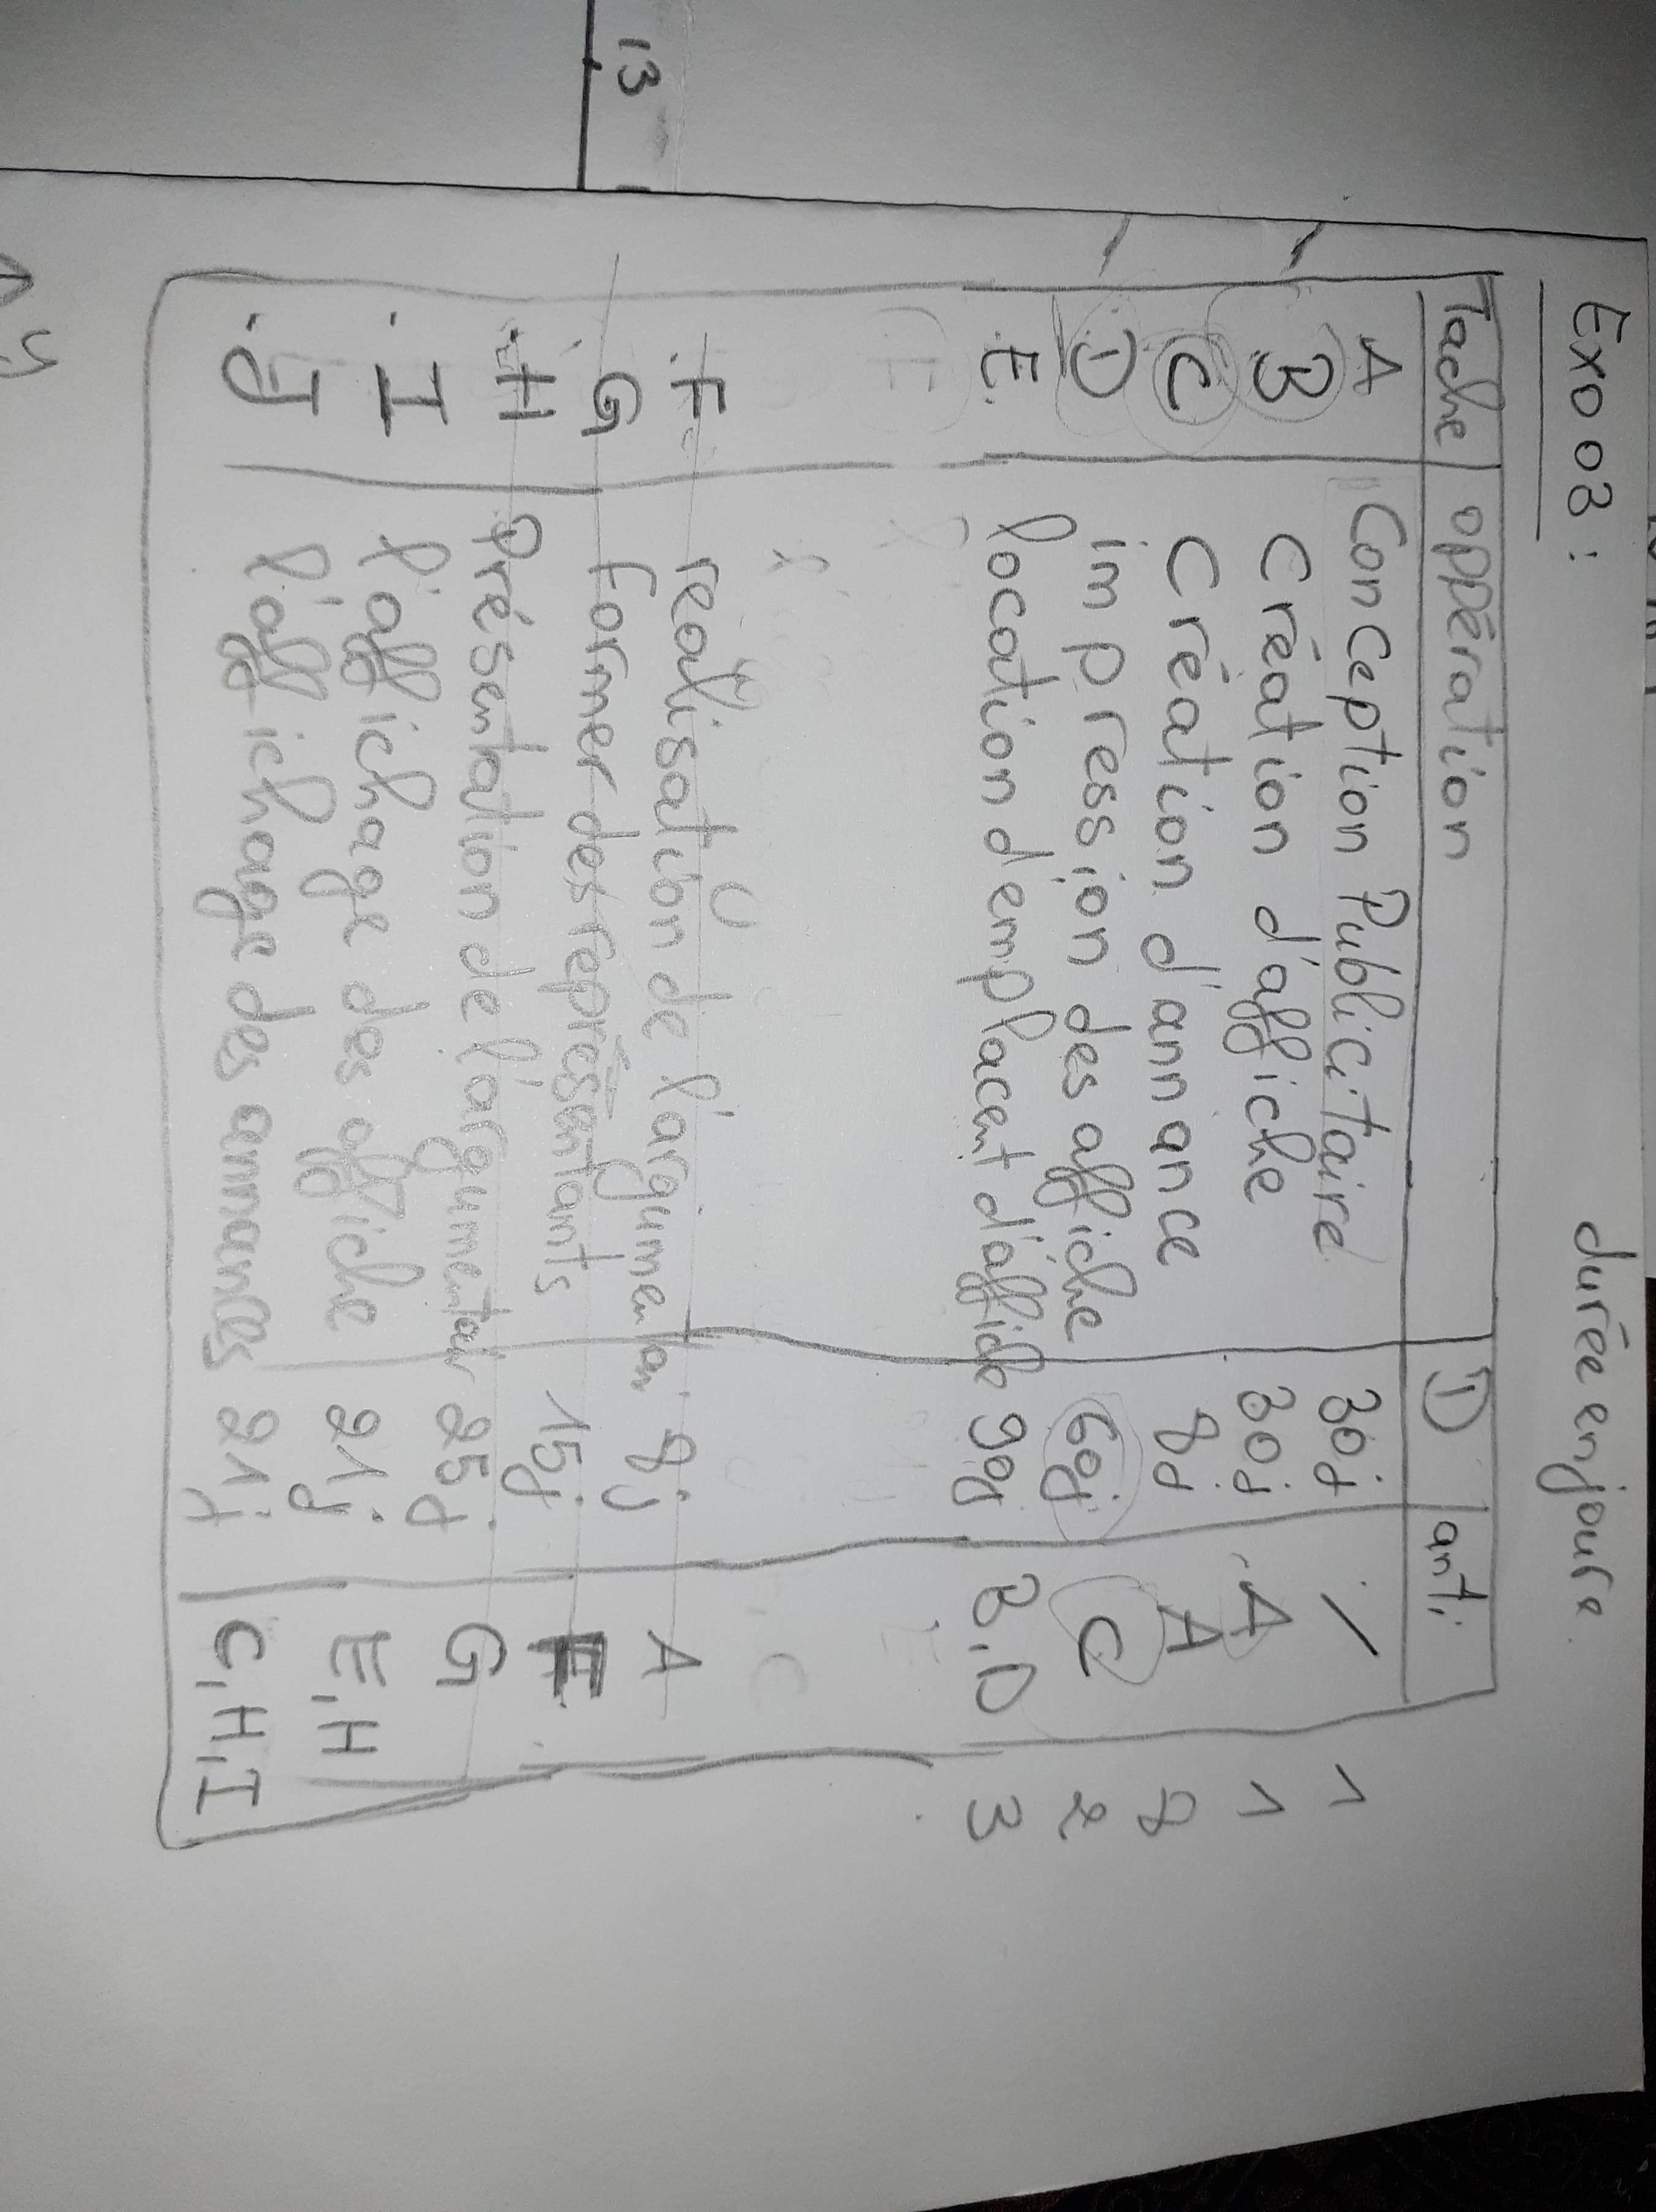 Exo 03 : durée en joure.
Tache oppération D anti
A Conception Publicitaire 30j / 1
B Création d'affiche 30j A 1
C Création d'annance 8j A 8
D impression des affiche 60j C 2
E. location d'emplacent d'affiche 90j B, D 3
F 21j E
C
F realisation de l'argumentair 8j A
13
G Former des représentants 15j F
H Présentation de l'argumentair 25j G
I l'affichage des affiche 21j E, H
J l'affichage des annances 21j C, H, I
y